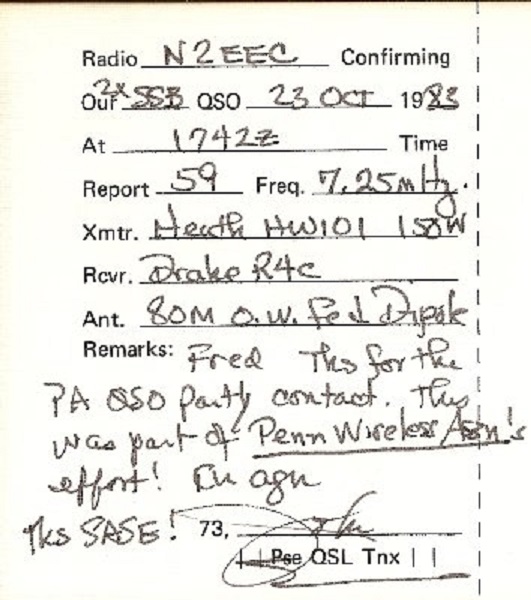 Radio N2EEC Confirming
Our 2x SSB QSO 23 OCT 1983
At 1742Z Time
Report 59 Freq. 7.25mHz.
Xmtr. Heath HW101 150W
Rcvr. Drake R4C
Ant. 80M O.W. Fed Dipole
Remarks: Fred Tks for the
PA QSO party contact. This
was part of Penn Wireless Assn's
effort! Cu agn
Tks SASE! 73,
Pse QSL Tnx | |